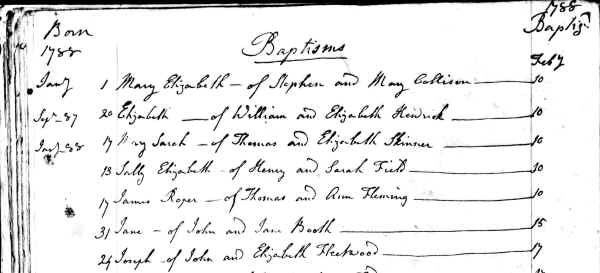 Born 1788
1788 Baptis'd
Baptisms
Feby
Jany 1 Mary Elizabeth — of Stephen and Mary Collison — 10
Sept. 87 20 Elizabeth — of William and Elizabeth Hendrick — 10
Jany 88 17 Mary Sarah — of Thomas and Elizabeth Skinner — 10
13 Sally Elizabeth - of Henry and Sarah Field — 10
17 James Roper — of Thomas and Ann Fleming — 10
31 Jane — of John and Jane Booth — 15
24 Joseph — of John and Elizabeth Fleetwood — 17